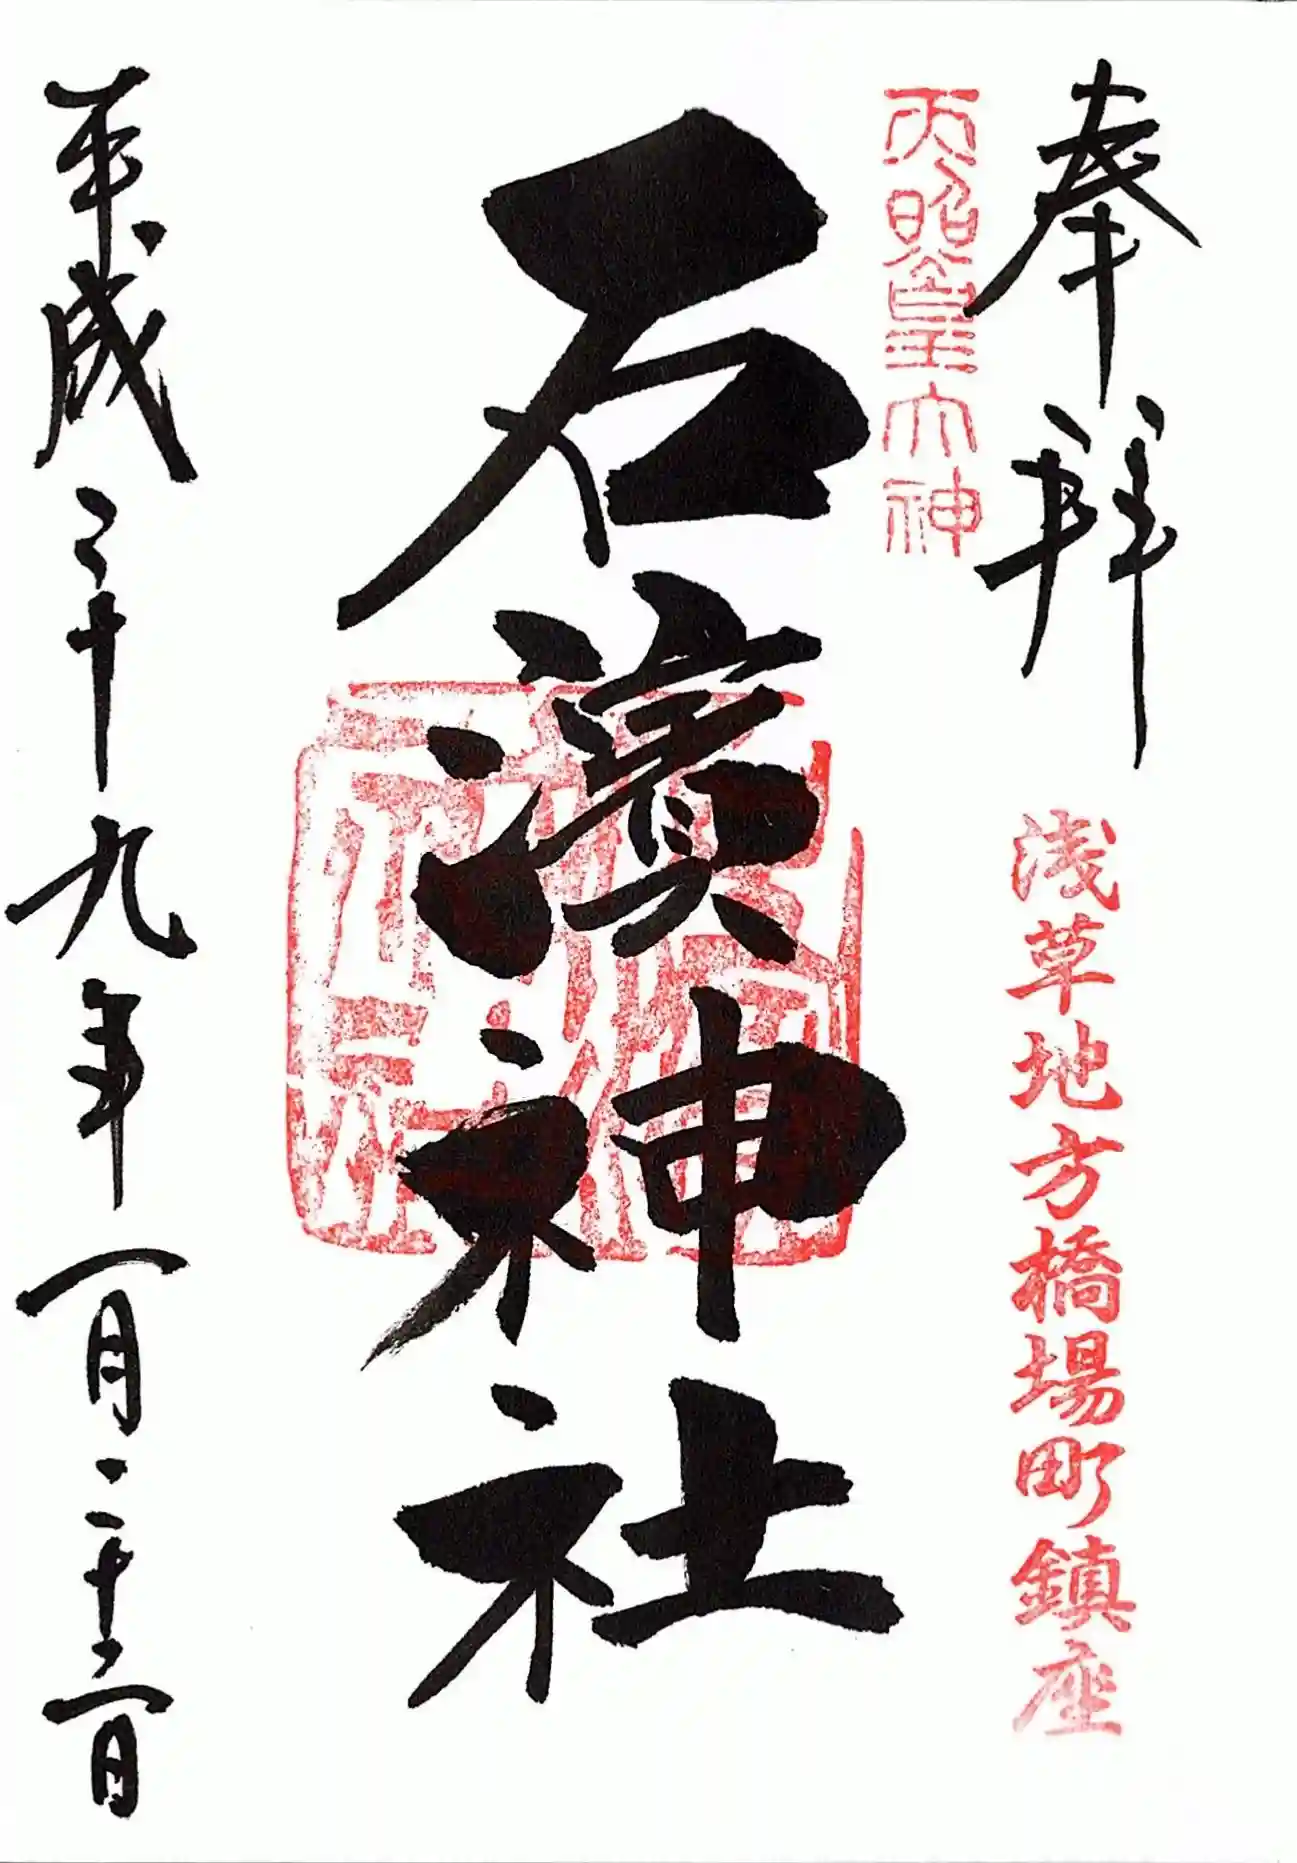 奉拜
浅草地方橋場町鎮座
天照皇大神
石濱神社
平成二十九年一月二十二日